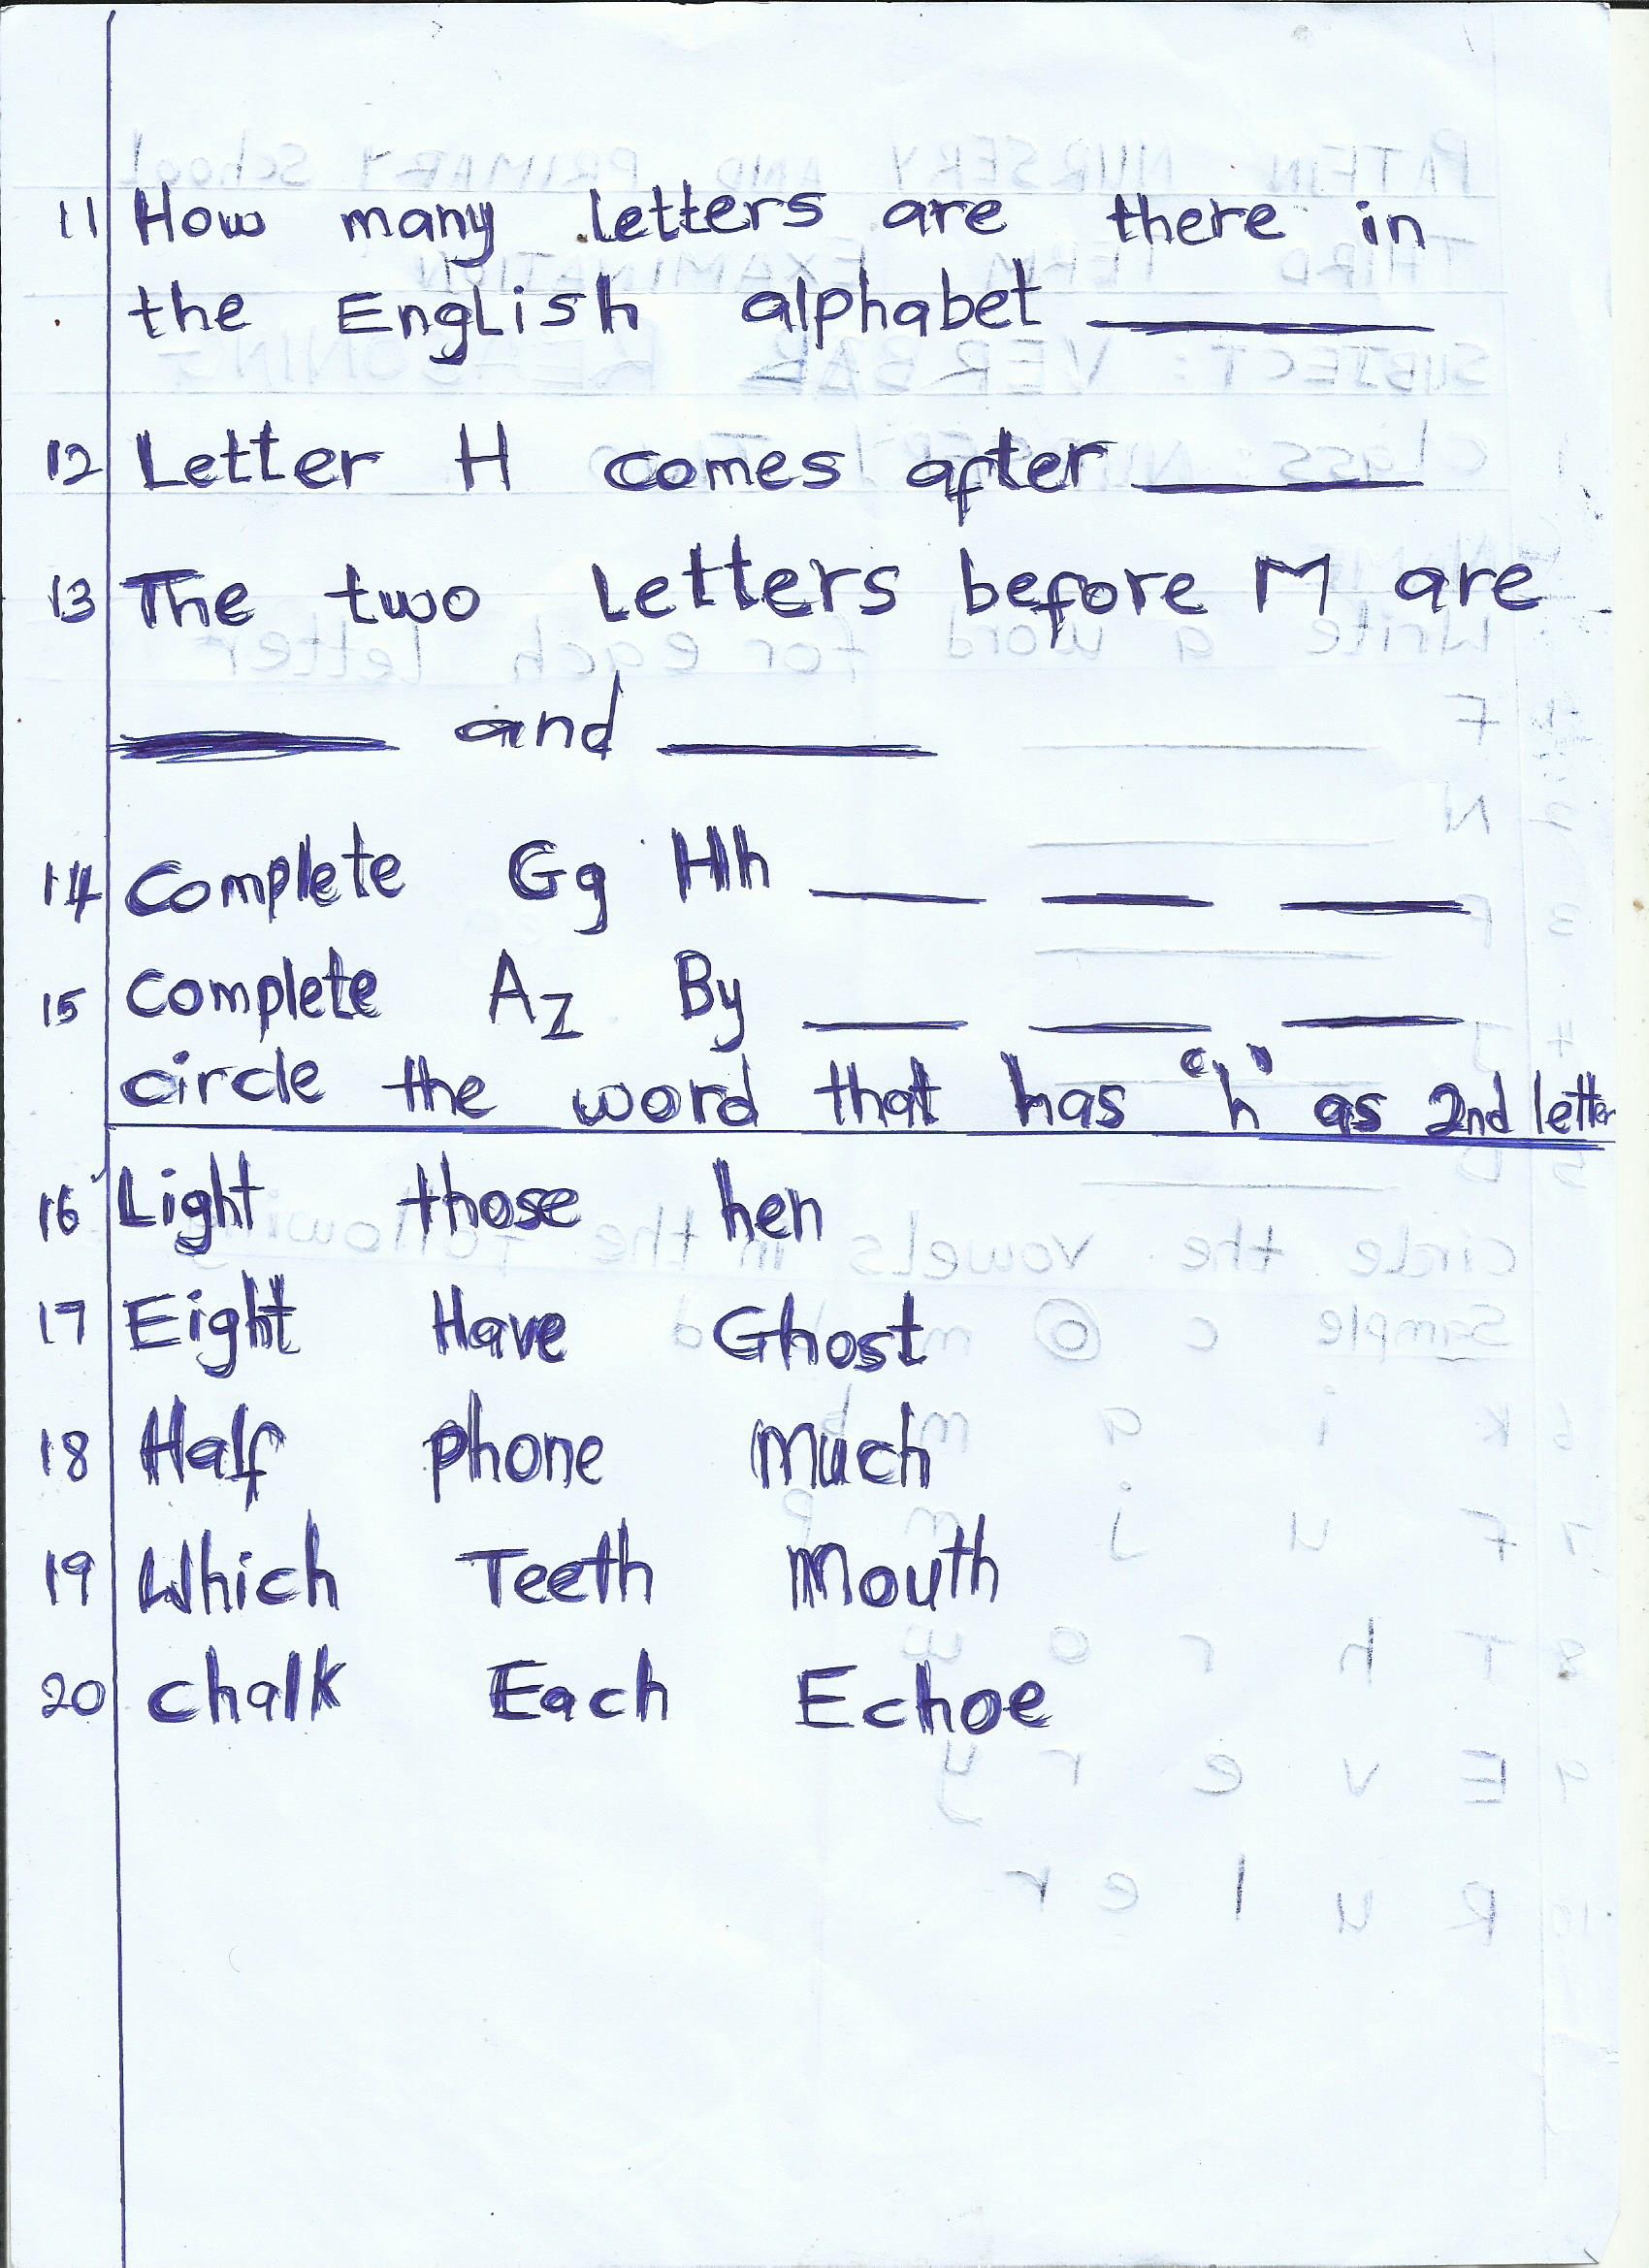 11 How many letters are there in
the English alphabet ________
12 Letter H comes after ________
13 The two Letters before M are
________ and ________
14 Complete Gg Hh ____ ____ ____
15 Complete Az By ____ ____ ____
circle the word that has "h" as 2nd letter
16 Light those hen
17 Eight Have Ghost
18 Half phone Much
19 Which Teeth Mouth
20 chalk Each Echoe